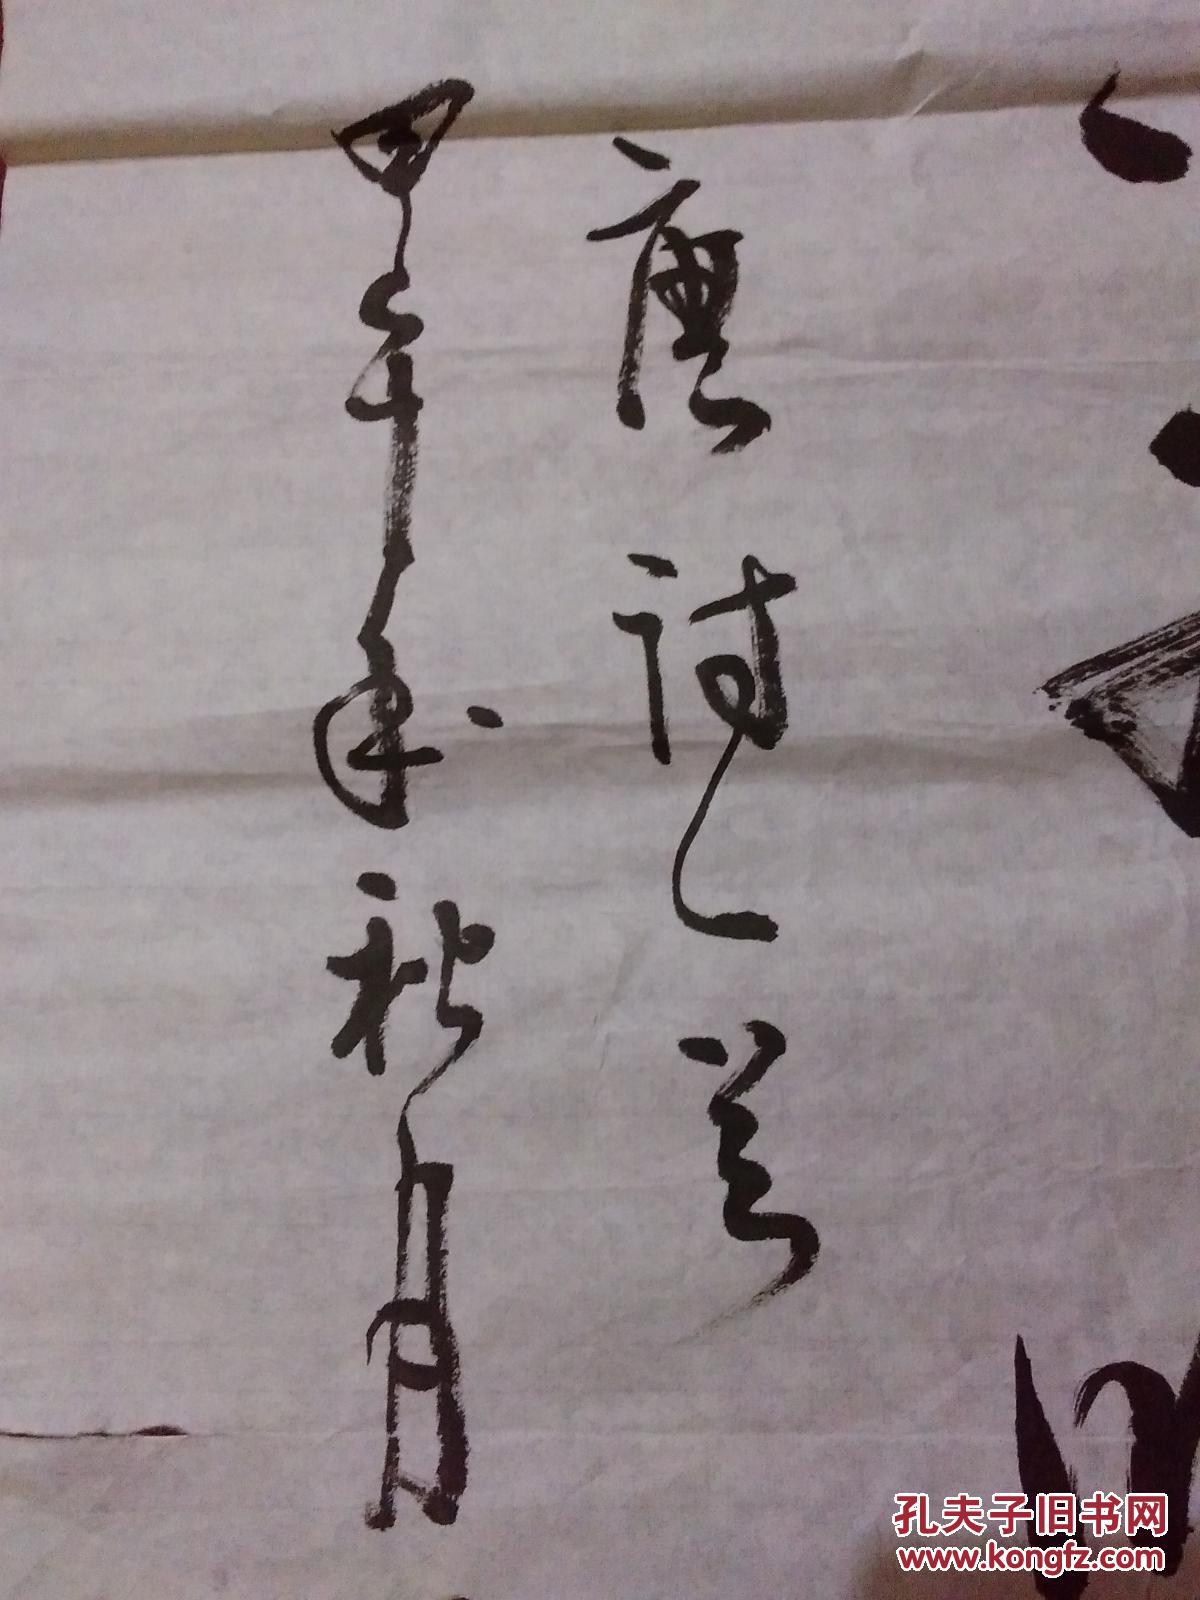 唐诗一首
甲午年秋月
孔夫子旧书网
www.kongfz.com